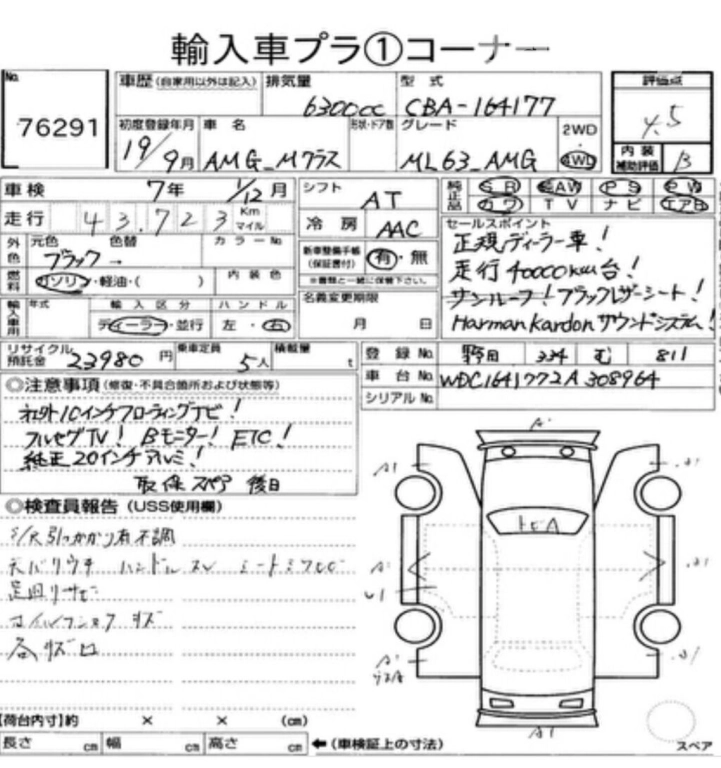 輸入車プラ①コーナー
No.
76291
車歴 (自家用以外は記入)
排気量
6300cc
型式
CBA-164177
評価点
4.5
内装
補助評価
B
初度登録年月
19/9月
車名
AMG_Mクラス
形状・ドア数
グレード
ML63_AMG
2WD
4WD
車検 7年 1/12月
シフト AT
純正品 SR AW PS PW
カワ TV ナビ エアB
走行 43,723 Km マイル
冷房 AAC
外色 元色 色替 カラーNo.
ブラック→
新車整備手帳
(保証書付)
有・無
※書類と一緒に保管下さい。
燃料 ガソリン・軽油・( )
内装色
輸入車用 年式 輸入区分 ハンドル
ディーラー・並行 左・右
名義変更期限
月 日
セールスポイント
正規ディーラー車!
走行40000km台!
サンルーフ!ブラックレザーシート!
Harman Kardonサウンドシステム!
リサイクル
預託金
23980円
乗車定員 5人
積載量 t
登録No. 野田 334 む 811
車台No. WDC1641772A308964
シリアルNo.
◎注意事項 (修復・不具合箇所および状態等)
社外10インチフローティングナビ!
フルセグTV! Bモニター! ETC!
純正20インチアルミ!
取保スペア 後日
◎検査員報告 (USS使用欄)
S/R引っかかり有不調
足回りサビ
各キズ凹
A1
A1
トビA
A1
【荷台内寸】約 × × (cm)
長さ cm 幅 cm 高さ cm
←(車検証上の寸法)
スペア